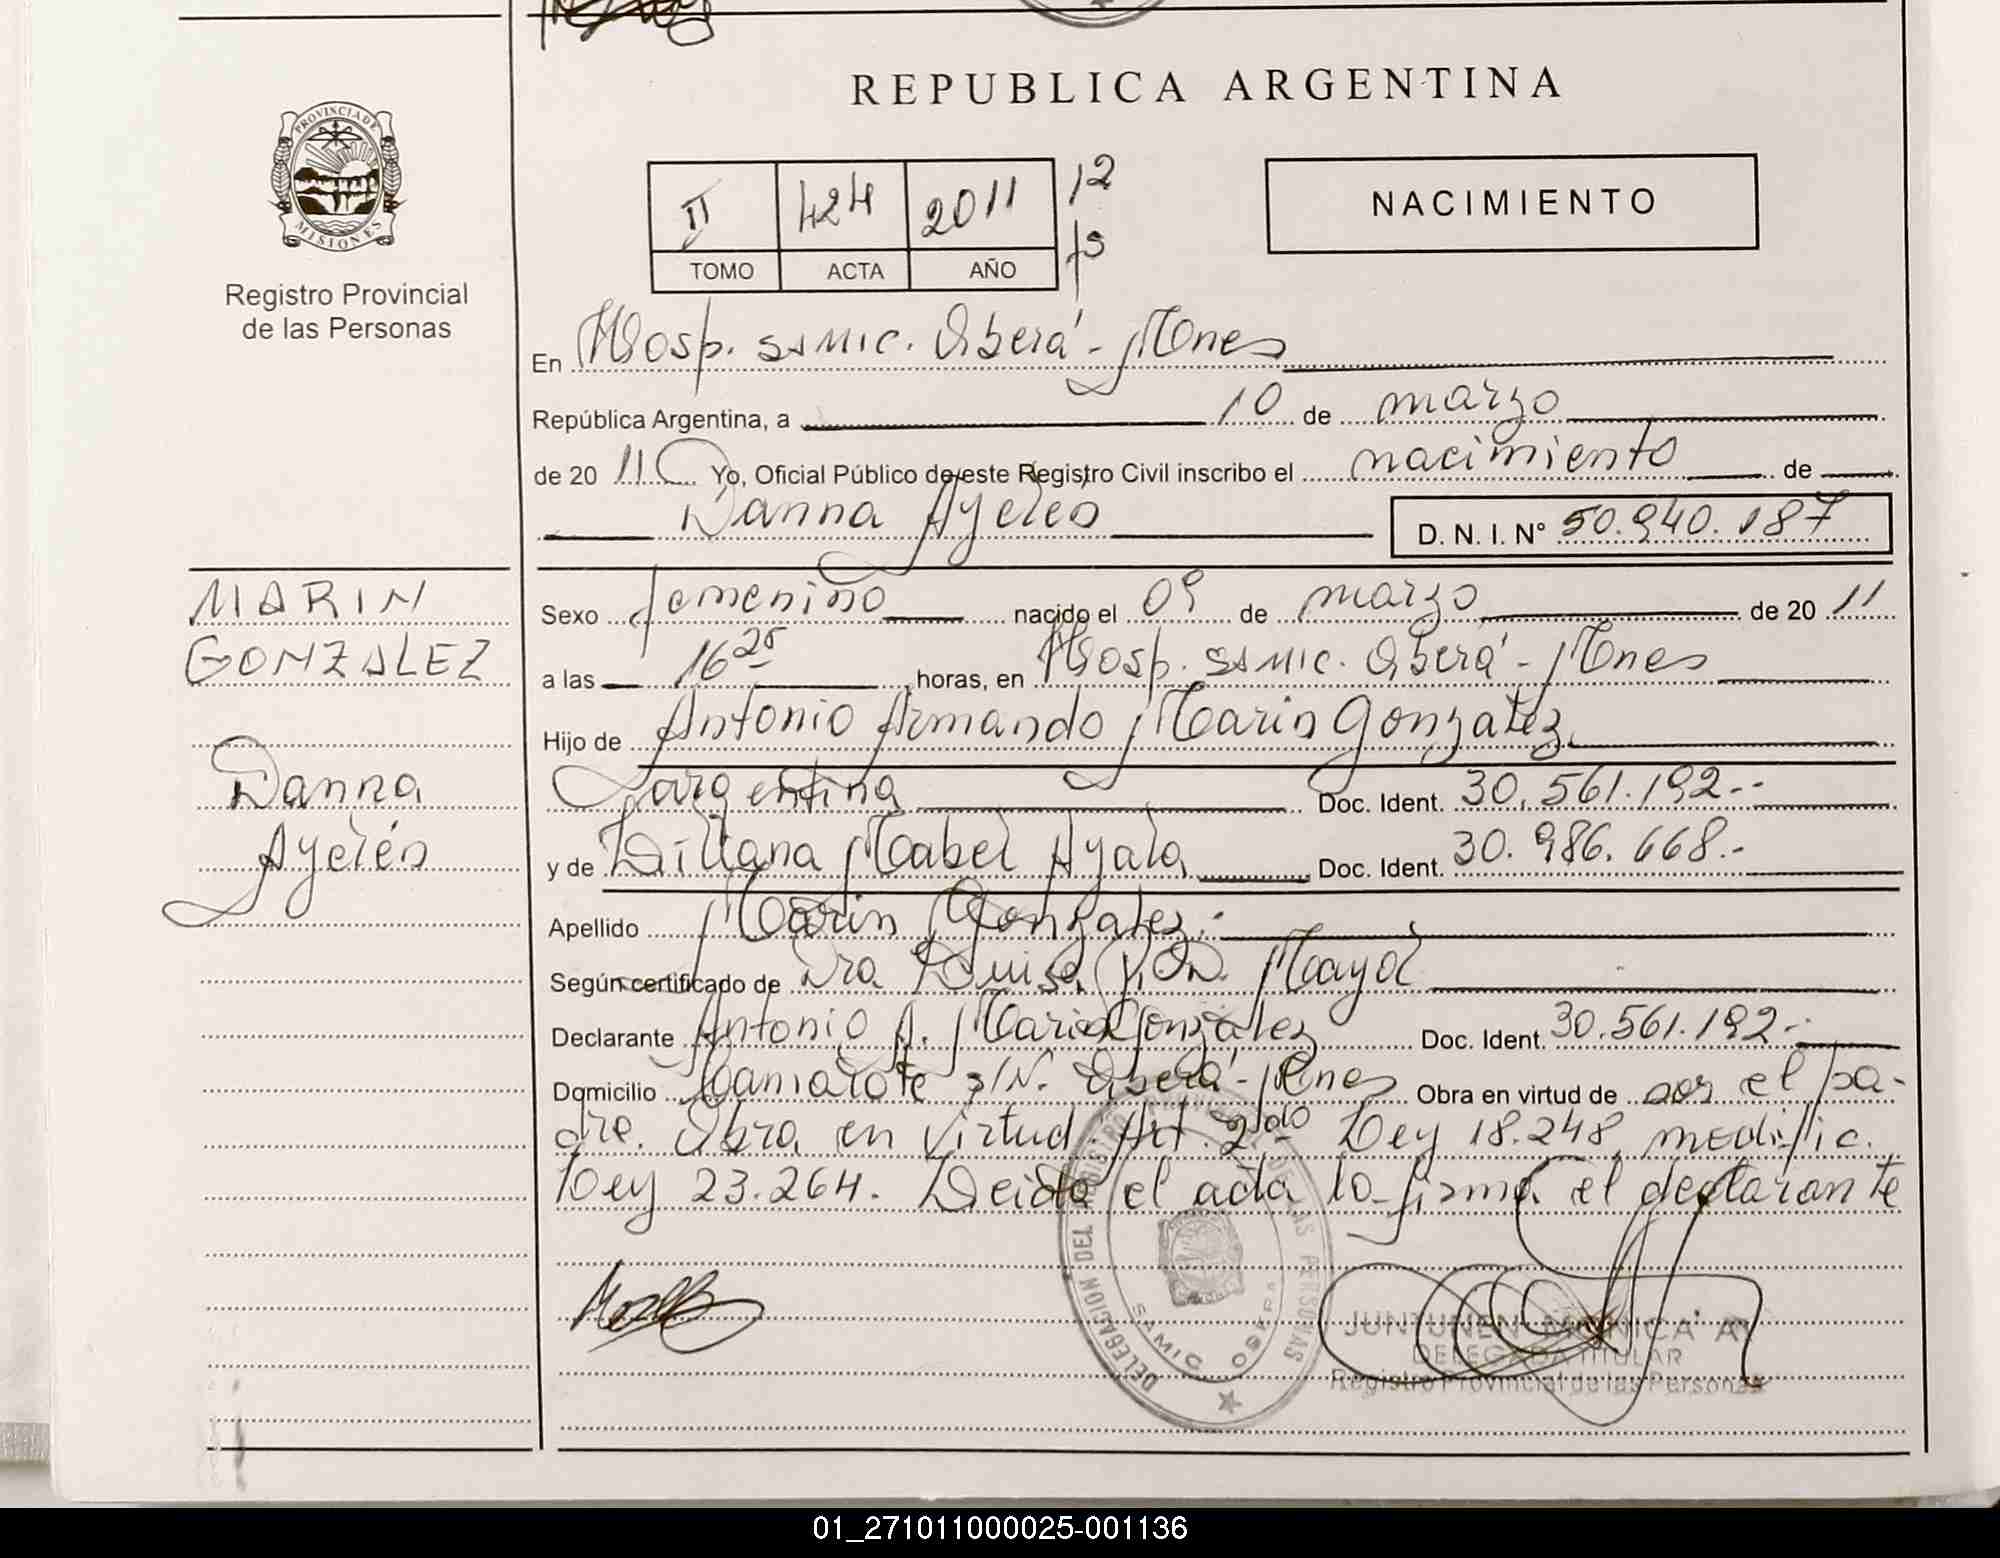 REPUBLICA ARGENTINA
PROVINCIA DE
MISIONES
Registro Provincial
de las Personas
II 424 2011 12
TOMO ACTA AÑO
NACIMIENTO
En Hosp. SAMIC. Oberá - Mnes
República Argentina, a 10 de marzo
de 20 11 Yo, Oficial Público de este Registro Civil inscribo el nacimiento de
Danna Ayelén D. N. I. Nº 50.940.187
MARIN
GONZALEZ
Danna
Ayelén
Sexo femenino nacido el 09 de marzo de 20 11
a las 16 25 horas, en Hosp. SAMIC. Oberá - Mnes
Hijo de Antonio Armando Marin Gonzalez
argentina Doc. Ident. 30.561.192.-
y de Liliana Mabel Ayala Doc. Ident. 30.986.668.-
Apellido Marin Gonzalez.
Según certificado de Dra Luisa Mayol
Declarante Antonio A. Marin Gonzalez Doc. Ident. 30.561.192.-
Domicilio S/N. Oberá - Mnes Obra en virtud de ser el pa-
dre. Obra en virtud. Art. 2do Ley 18.248 modific.
Ley 23.264. Leida el acta la firma el declarante
DELEGACION DEL REGISTRO PROVINCIAL DE LAS PERSONAS
SAMIC OBERA
JUNTUNEN MONICA A.
DELEGADA TITULAR
Registro Provincial de las Personas
01_271011000025-001136